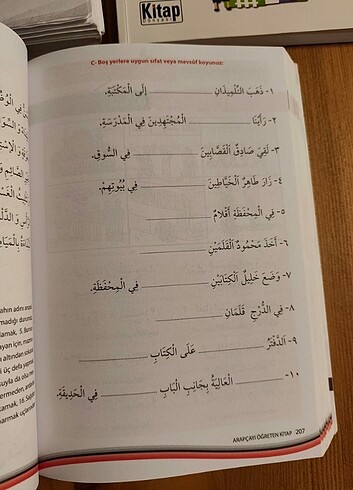 Kitap
DÜNYASI
C- Boş yerlere uygun sıfat veya mevsûf koyunuz:
١- ذَهَبَ التِّلْمِيذَانِ ــــــــــــــ إِلَى الْمَكْتَبَةِ.
٢- رَأَيْنَا ــــــــــــــ الْمُجْتَهِدِينَ فِي الْمَدْرَسَةِ.
٣- لَقِيَ صَادِقٌ الْقَصَّابِينَ ــــــــــــــ فِي السُّوقِ.
٤- زَارَ طَاهِرٌ الْخَيَّاطِينَ ــــــــــــــ فِي بُيُوتِهِمْ.
٥- فِي الْمِحْفَظَةِ أَقْلَامٌ ــــــــــــــ
٦- أَخَذَ مَحْمُودٌ الْقَلَمَيْنِ ــــــــــــــ
٧- وَضَعَ خَلِيلٌ الْكِتَابَيْنِ ــــــــــــــ فِي الْمِحْفَظَةِ.
٨- فِي الدُّرْجِ قَلَمَانِ ــــــــــــــ
٩- اَلدَّفْتَرُ ــــــــــــــ عَلَى الْكِتَابِ ــــــــــــــ
١٠- ــــــــــــــ الْعَالِيَةُ بِجَانِبِ الْبَابِ ــــــــــــــ فِي الْحَدِيقَةِ.
ARAPÇAYI ÖĞRETEN KİTAP 207